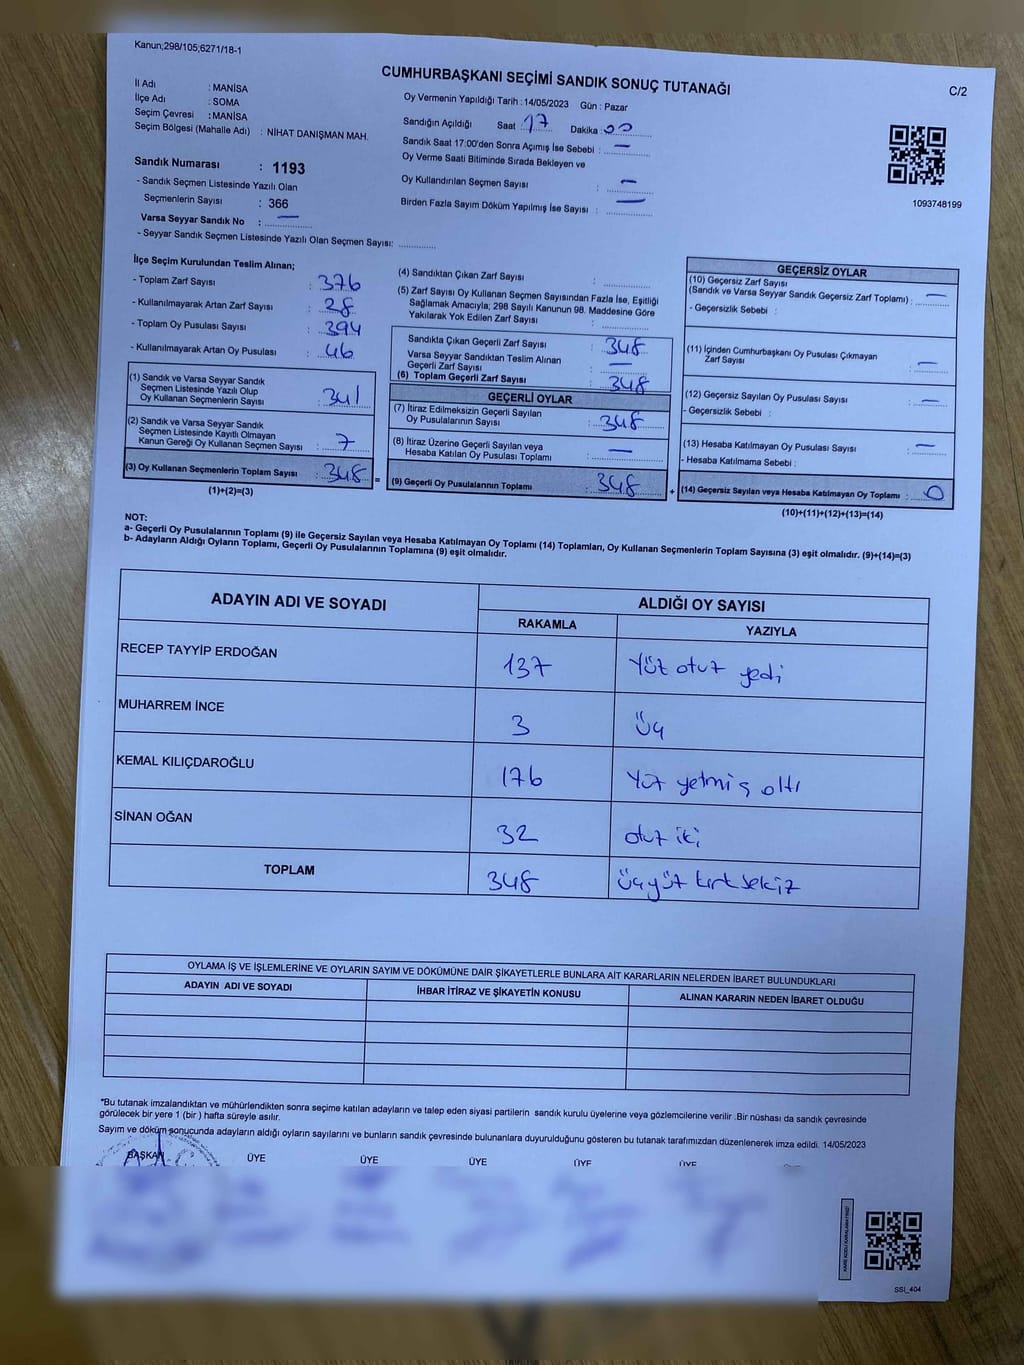 Kanun;298/105;6271/18-1
CUMHURBAŞKANI SEÇİMİ SANDIK SONUÇ TUTANAĞI
C/2
İl Adı : MANİSA
İlçe Adı : SOMA
Seçim Çevresi : MANİSA
Seçim Bölgesi (Mahalle Adı) : NİHAT DANIŞMAN MAH.
Oy Vermenin Yapıldığı Tarih : 14/05/2023 Gün : Pazar
Sandığın Açıldığı Saat : 17 Dakika : 00
Sandık Saat 17:00'den Sonra Açımış İse Sebebi : —
Oy Verme Saati Bitiminde Sırada Bekleyen ve
Oy Kullandırılan Seçmen Sayısı : —
Birden Fazla Sayım Döküm Yapılmış İse Sayısı : —
1093748199
Sandık Numarası : 1193
- Sandık Seçmen Listesinde Yazılı Olan
Seçmenlerin Sayısı : 366
Varsa Seyyar Sandık No : —
- Seyyar Sandık Seçmen Listesinde Yazılı Olan Seçmen Sayısı:
İlçe Seçim Kurulundan Teslim Alınan;
- Toplam Zarf Sayısı : 376
- Kullanılmayarak Artan Zarf Sayısı : 28
- Toplam Oy Pusulası Sayısı : 394
- Kullanılmayarak Artan Oy Pusulası : 46
(1) Sandık ve Varsa Seyyar Sandık
Seçmen Listesinde Yazılı Olup
Oy Kullanan Seçmenlerin Sayısı : 341
(2) Sandık ve Varsa Seyyar Sandık
Seçmen Listesinde Kayıtlı Olmayan
Kanun Gereği Oy Kullanan Seçmen Sayısı : 7
(3) Oy Kullanan Seçmenlerin Toplam Sayısı : 348 =
(1)+(2)=(3)
(4) Sandıktan Çıkan Zarf Sayısı :
(5) Zarf Sayısı Oy Kullanan Seçmen Sayısından Fazla İse, Eşitliği
Sağlamak Amacıyla; 298 Sayılı Kanunun 98. Maddesine Göre
Yakılarak Yok Edilen Zarf Sayısı :
Sandıkta Çıkan Geçerli Zarf Sayısı : 348
Varsa Seyyar Sandıktan Teslim Alınan
Geçerli Zarf Sayısı : —
(6) Toplam Geçerli Zarf Sayısı : 348
GEÇERLİ OYLAR
(7) İtiraz Edilmeksizin Geçerli Sayılan
Oy Pusulalarının Sayısı : 348
(8) İtiraz Üzerine Geçerli Sayılan veya
Hesaba Katılan Oy Pusulası Toplamı : —
(9) Geçerli Oy Pusulalarının Toplamı : 348 +
GEÇERSİZ OYLAR
(10) Geçersiz Zarf Sayısı
(Sandık ve Varsa Seyyar Sandık Geçersiz Zarf Toplamı) : —
- Geçersizlik Sebebi :
(11) İçinden Cumhurbaşkanı Oy Pusulası Çıkmayan
Zarf Sayısı : —
(12) Geçersiz Sayılan Oy Pusulası Sayısı : —
- Geçersizlik Sebebi :
(13) Hesaba Katılmayan Oy Pusulası Sayısı : —
- Hesaba Katılmama Sebebi :
(14) Geçersiz Sayılan veya Hesaba Katılmayan Oy Toplamı : 0
(10)+(11)+(12)+(13)=(14)
NOT:
a- Geçerli Oy Pusulalarının Toplamı (9) ile Geçersiz Sayılan veya Hesaba Katılmayan Oy Toplamı (14) Toplamları, Oy Kullanan Seçmenlerin Toplam Sayısına (3) eşit olmalıdır. (9)+(14)=(3)
b- Adayların Aldığı Oyların Toplamı, Geçerli Oy Pusulalarının Toplamına (9) eşit olmalıdır.
ADAYIN ADI VE SOYADI ALDIĞI OY SAYISI
RAKAMLA YAZIYLA
RECEP TAYYİP ERDOĞAN 137 Yüz otuz yedi
MUHARREM İNCE 3 üç
KEMAL KILIÇDAROĞLU 176 Yüz yetmiş altı
SİNAN OĞAN 32 otuz iki
TOPLAM 348 üçyüz kırksekiz
OYLAMA İŞ VE İŞLEMLERİNE VE OYLARIN SAYIM VE DÖKÜMÜNE DAİR ŞİKAYETLERLE BUNLARA AİT KARARLARIN NELERDEN İBARET BULUNDUKLARI
ADAYIN ADI VE SOYADI İHBAR İTİRAZ VE ŞİKAYETİN KONUSU ALINAN KARARIN NEDEN İBARET OLDUĞU
*Bu tutanak imzalandıktan ve mühürlendikten sonra seçime katılan adayların ve talep eden siyasi partilerin sandık kurulu üyelerine veya gözlemcilerine verilir .Bir nüshası da sandık çevresinde
görülecek bir yere 1 (bir ) hafta süreyle asılır.
Sayım ve döküm sonucunda adayların aldığı oyların sayılarını ve bunların sandık çevresinde bulunanlara duyurulduğunu gösteren bu tutanak tarafımızdan düzenlenerek imza edildi. 14/05/2023
BAŞKAN ÜYE ÜYE ÜYE ÜYE ÜYE
SSI_404